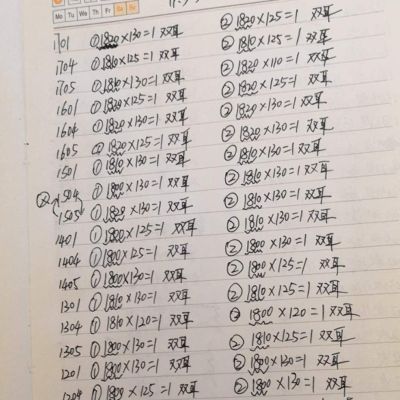 Mo Tu We Th Fr Sa Su
1701 ①1820×130=1 双耳 ②1820×125=1 双耳
1704 ①1810×125=1 双耳 ②1810×125=1 双耳
1705 ①1810×130=1 双耳 ②1820×110=1 双耳
1601 ①1820×125=1 双耳 ②1820×125=1 双耳
1604 ①1820×130=1 双耳 ②1820×130=1 双耳
1605 ①1820×125=1 双耳 ②1820×130=1 双耳
1501 ①1810×130=1 双耳 ②1810×130=1 双耳
1504 ①1800×130=1 双耳 ②1810×130=1 双耳
1505 ①1820×130=1 双耳 ②1810×130=1 双耳
1401 ①1800×125=1 双耳 ②1810×130=1 双耳
1404 ①1800×125=1 双耳 ②1800×130=1 双耳
1405 ①1800×130=1 双耳 ②1800×125=1 双耳
1301 ①1810×130=1 双耳 ②1810×125=1 双耳
1304 ①1810×120=1 双耳 ②1800×120=1 双耳
1305 ①1800×130=1 双耳 ②1810×125=1 双耳
1201 ①1800×130=1 双耳 ②1800×130=1 双耳
1204 ①1800×125=1 双耳 ②1800×130=1 双耳